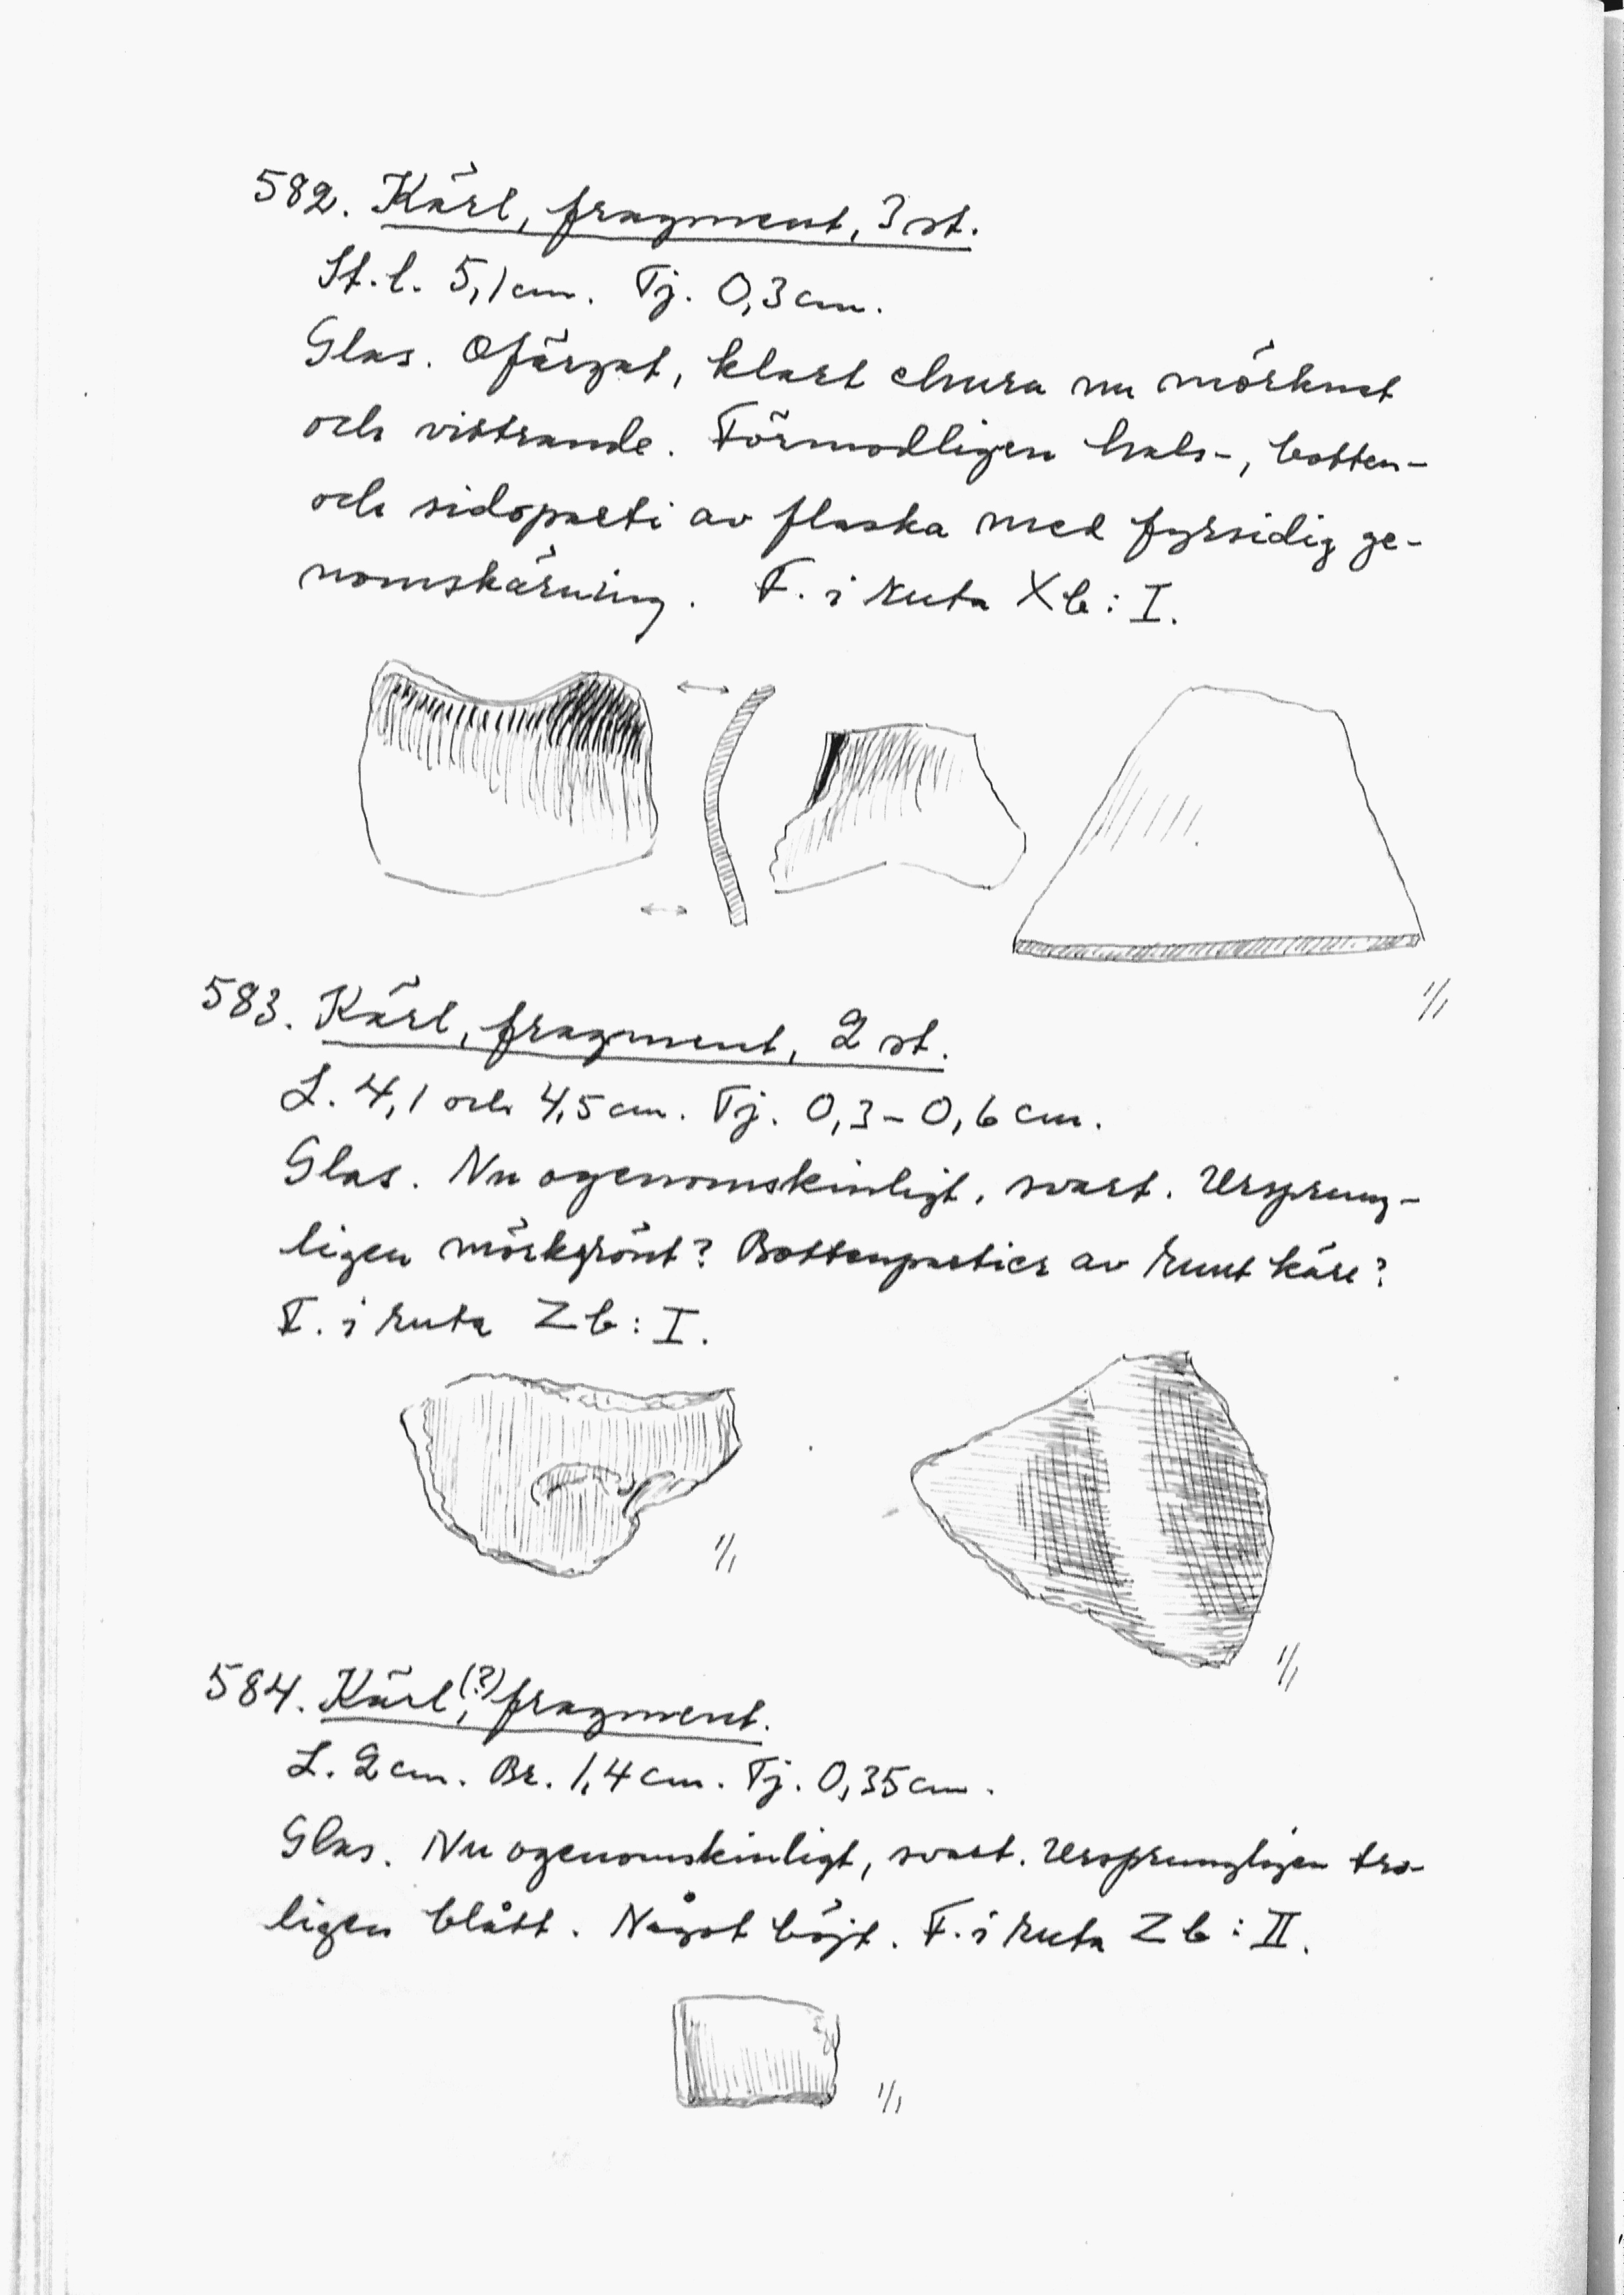 582. Kärl, fragment, 3 st.
St. l. 5,1 cm. Tj. 0,3 cm.
Glas. Ofärgat, klart ehuru nu mörknat
och vittrande. Förmodligen hals-, botten-
och sidoparti av flaska med fyrsidig ge-
nomskärning. F. i ruta Xb: I.
1/1
583. Kärl, fragment, 2 st.
L. 4,1 och 4,5 cm. Tj. 0,3-0,6 cm.
Glas. Nu ogenomskinligt, svart. Ursprung-
ligen mörkgrönt? Bottenpartier av runt kärl?
F. i ruta Zb: I.
1/1
1/1
584. Kärl(?), fragment.
L. 2 cm. Br. 1,4 cm. Tj. 0,35 cm.
Glas. Nu ogenomskinligt, svart. Ursprungligen tro-
ligen blått. Något böjt. F. i ruta Zb: II.
1/1